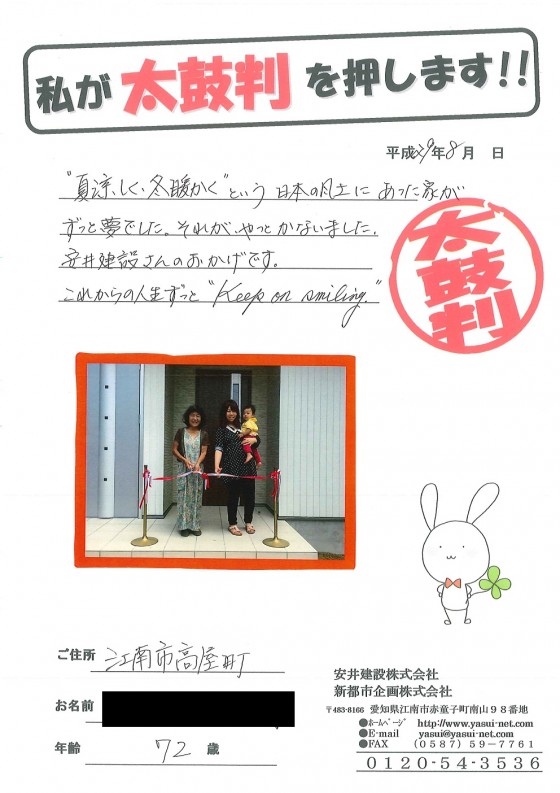 私が太鼓判を押します!!
平成29年8月　日
"夏涼しく、冬暖かく"という日本の風土にあった家が
ずっと夢でした。それが、やっとかないました。
安井建設さんのおかげです。
これからの人生ずっと"Keep on smiling."
太鼓判
ご住所　江南市高屋町
お名前
年齢　72　歳
安井建設株式会社
新都市企画株式会社
〒483-8166 愛知県江南市赤童子町南山98番地
●ﾎｰﾑﾍﾟｰｼﾞ http://www.yasui-net.com
●E-mail yasui@yasui-net.com
●FAX (0587)59-7761
0120-54-3536